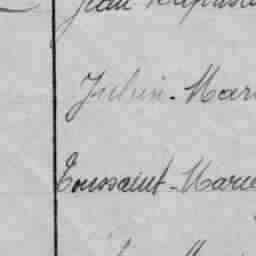 Jean Baptiste
Julien-Mari
Toussaint-Marie